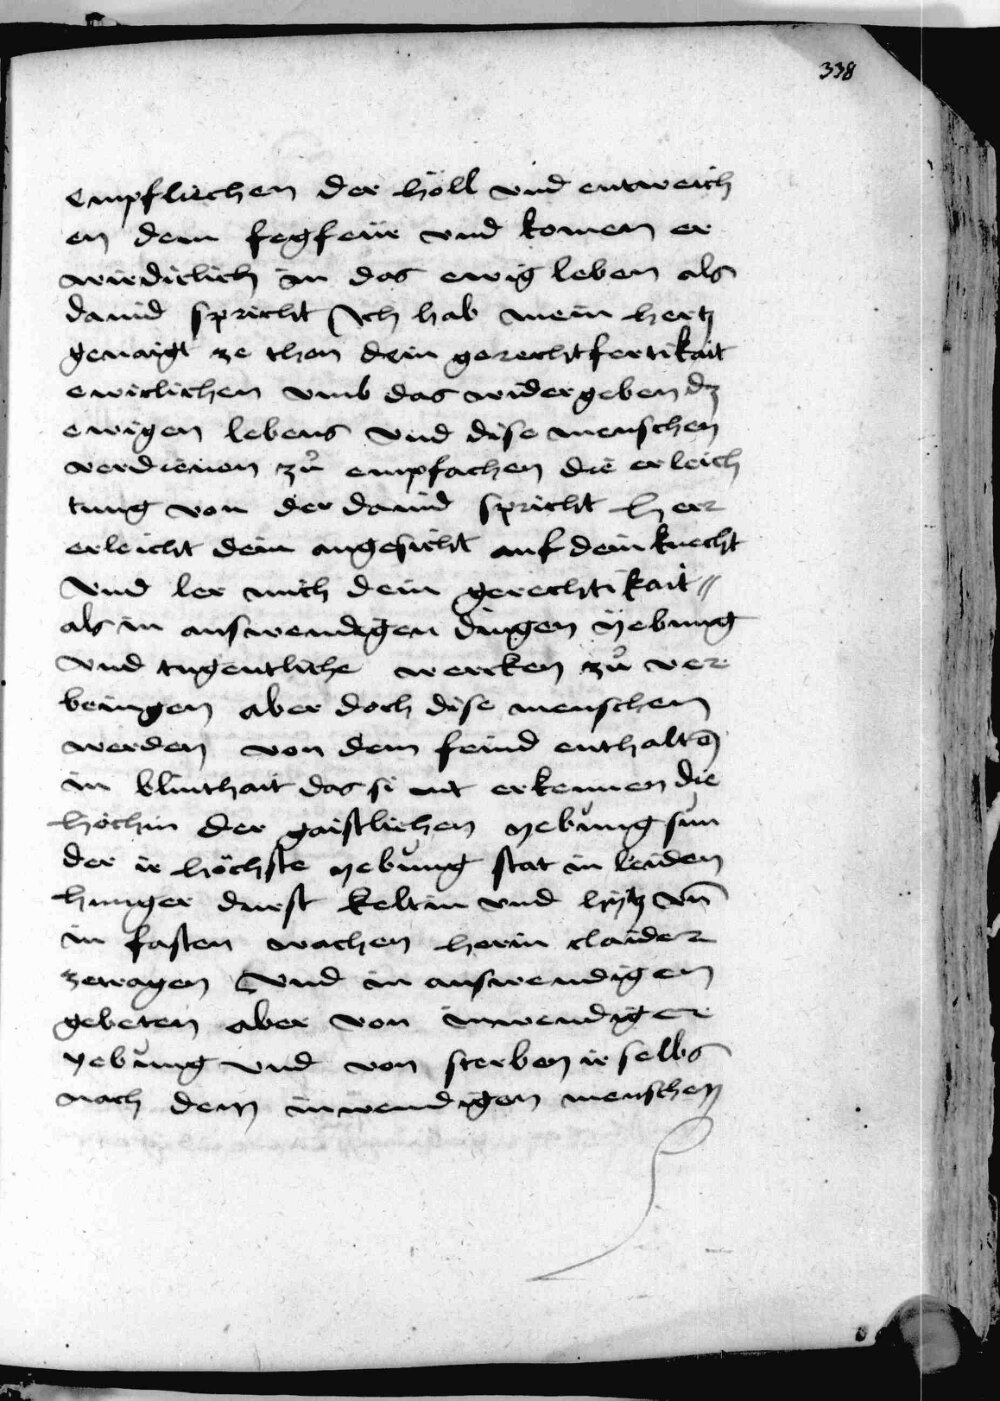 338
empfliechen der höll vnd entweich
en dem fegfeür vnd komen er
wirdiclich in das ewig leben als
dauid spricht Ich hab mein hertz
genaigt ze thon dein gerechtfertikait
ewiclichen vmb das widergeben dz
ewigen lebens vnd dise menschen
verdienen zů empfachen die erleich
tung von der dauid spricht herr
erleicht dein angesicht auf dein knecht
Vnd ler mich dein gerechtikait //
als in auswendigen dingen ÿebung
vnd tugentliche wercken zů ver
bringen aber doch dise menschen
werden von dem feind enthaltē
in blinthait das si nit erkennen die
höchin der gaistlichen yebung sun
der ir höchste yebung stat in leiden
hunger durst keltin vnd hytz vn̄
in fasten wachen herin claider
zetragen Vnd in auswendigen
gebeten aber von inwendiger
yebung vnd von sterben ir selbs
nach dem inwendigen menschen